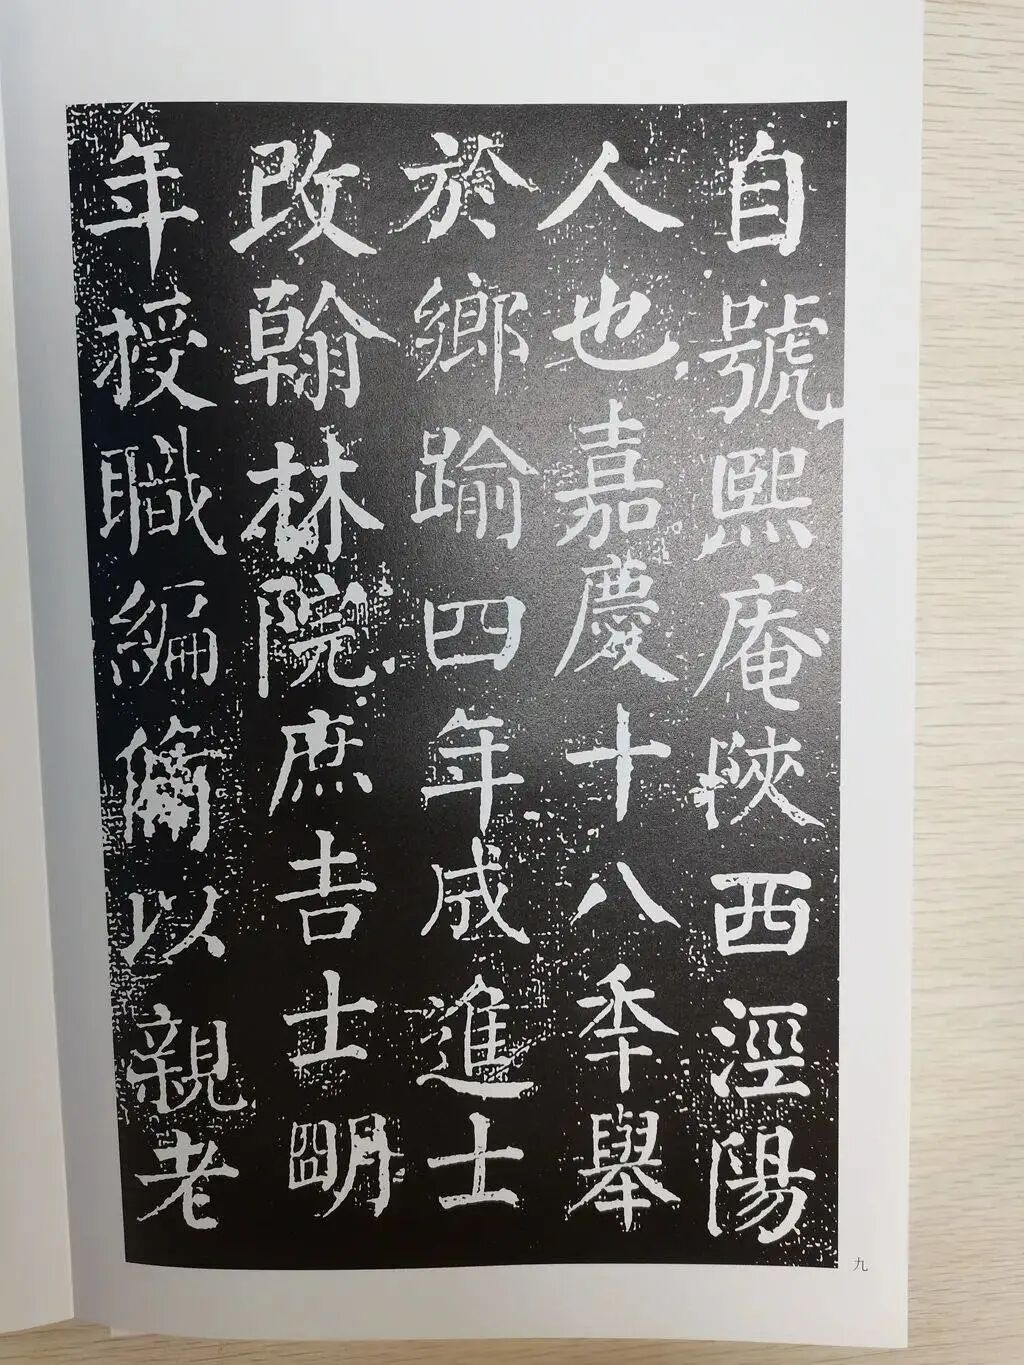 自號熙庵陝西涇陽
人也嘉慶十八秊舉
於鄉踰四年成進士
改翰林院庶吉士朙
年授職編脩以親老
九